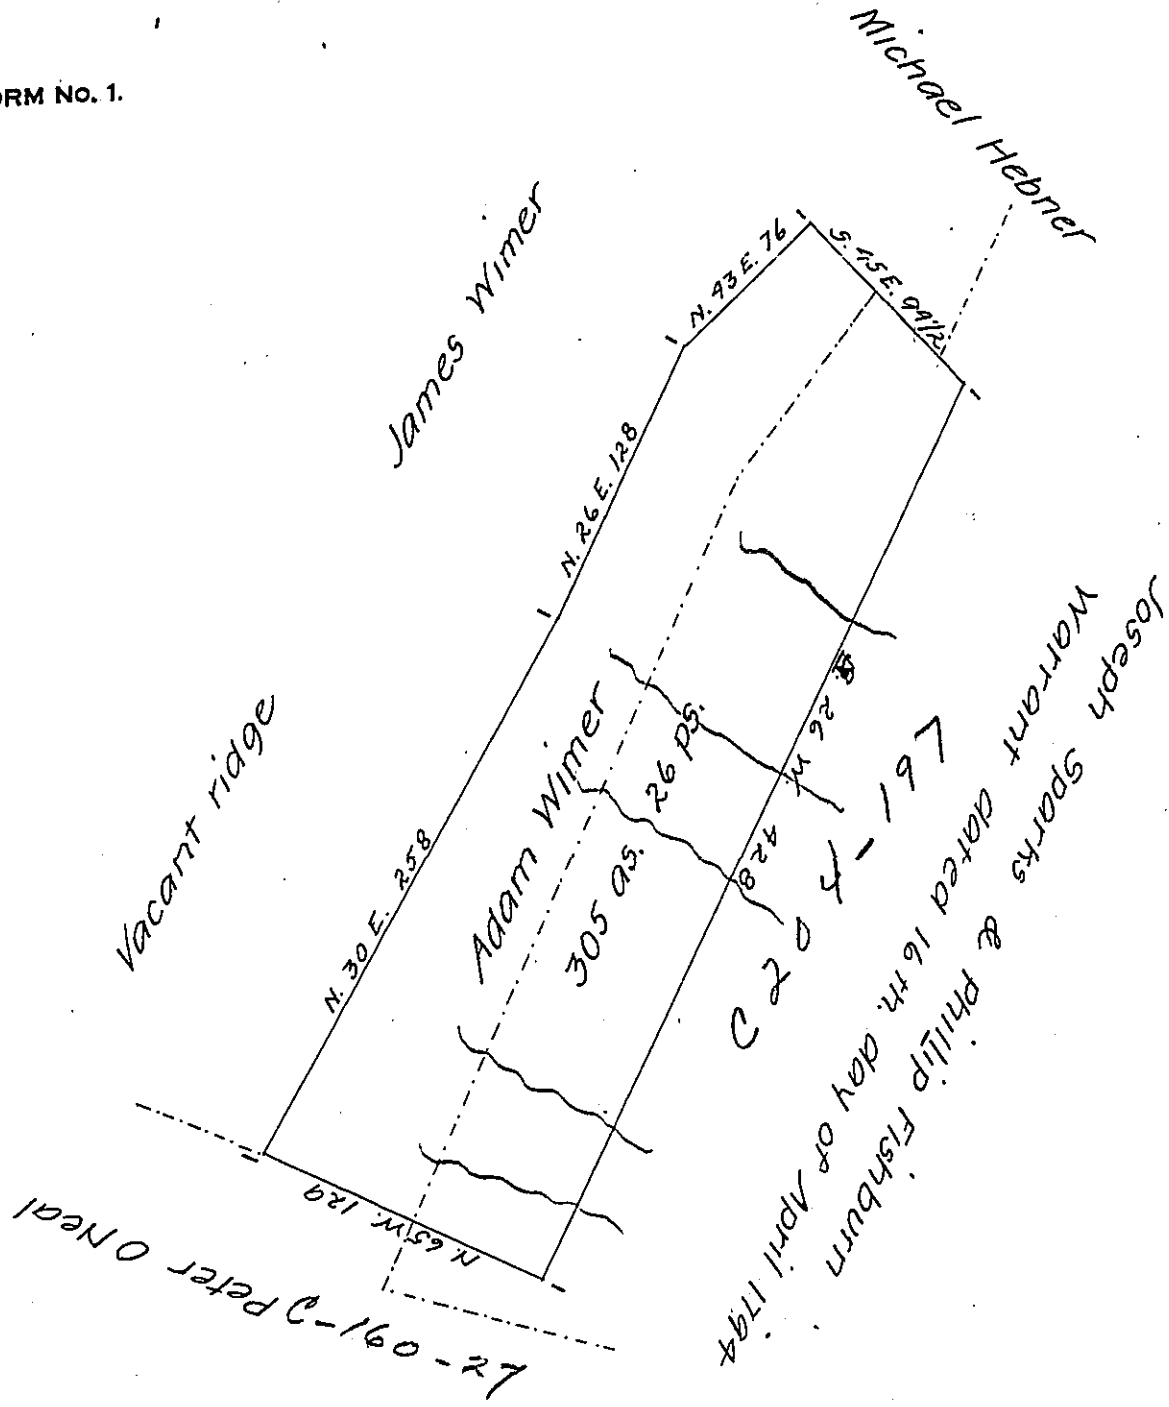 FORM No. 1.
Michael Hebner
James Wimer
N. 43 E. 76
S. 45 E. 99½
N. 26 E. 128
Vacant ridge
N. 30 E. 258
Adam Wimer
305 as. 26 ps.
26 W. 428
C 20 4-197
Joseph Sparks & Phillip Fishburn
Warrant dated 16th. day of April 1794
N. 65 W. 129
Peter O Neal